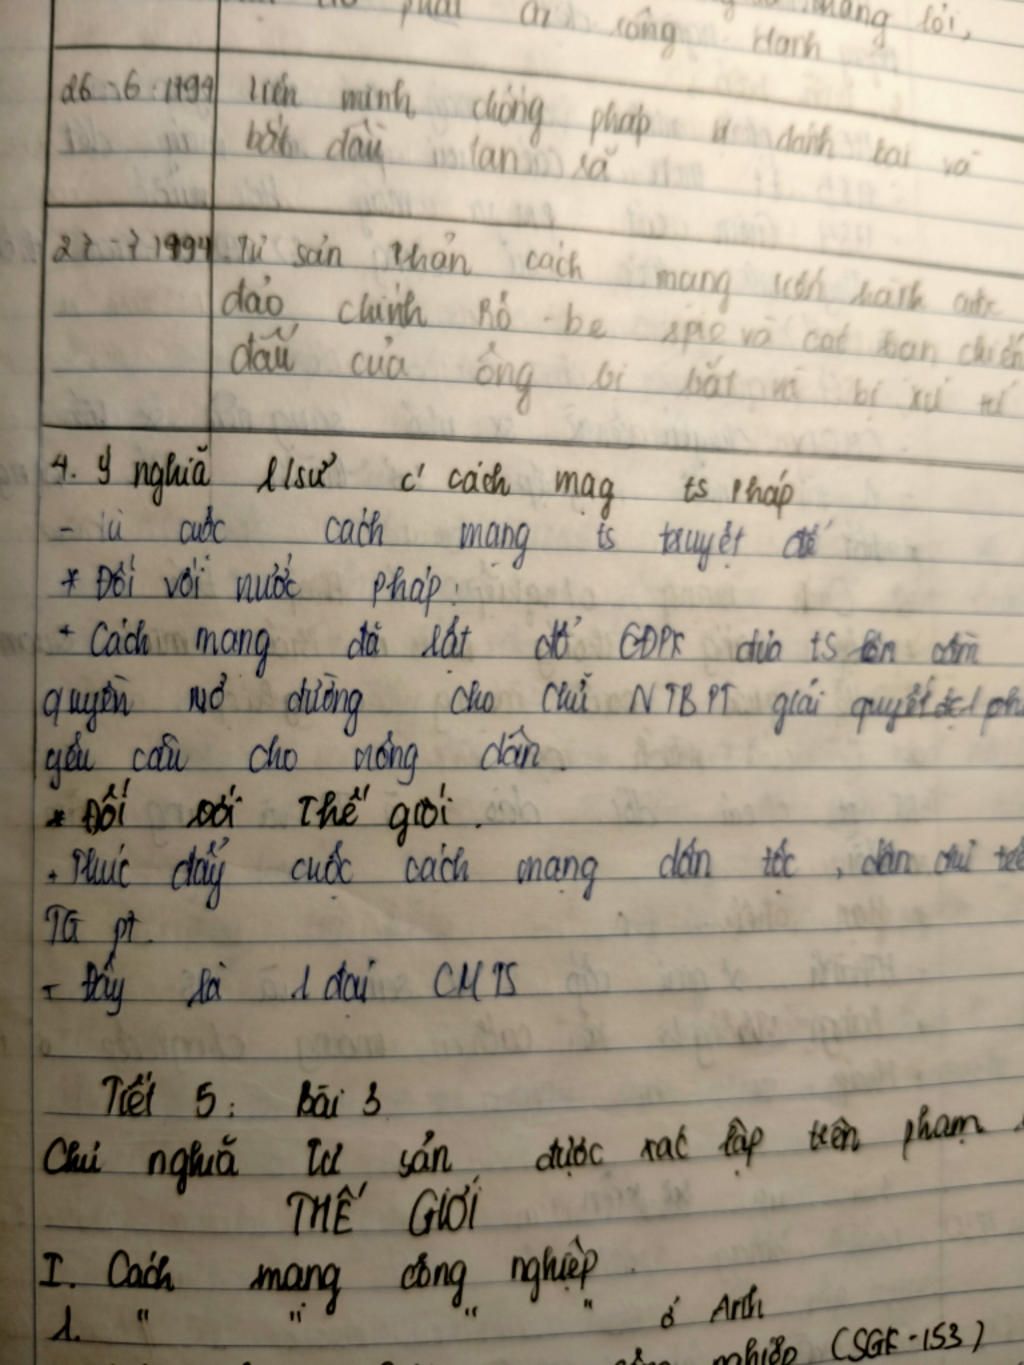 phái
công Hanh
mạng lỏi,
26-6-1794 Liên minh chống pháp bị đánh bại và
bắt đầu tan rã
27-7-1994 Tư sản phản cách mạng tiến hành cuộc
đảo chính Rô-be spie và cac bạn chiến
đấu của ông bị bắt và bị xử tử
4. Ý nghiã l/sử c' cách mag ts pháp
- là cuộc cách mạng ts truyệt để
* Đối với nước pháp:
+ Cách mang đã lật đổ CĐPK đưa ts lên cầm
quyền mở đường cho Chủ NTBPT giải quyết đc1 ph
yêu cầu cho nông dân.
* Đối với Thế giới.
+ Thúc đẩy cuộc cách mạng dân tộc, dân chủ trê
TG pt.
- Đây là 1 đại CMTS
Tiết 5: Bài 3
Chủ nghiã Tư sản được xac lập trên phạm
THẾ GIỚI
I. Cách mạng công nghiệp.
1. " " " " ở Anh
nghiệp (SGK-153)